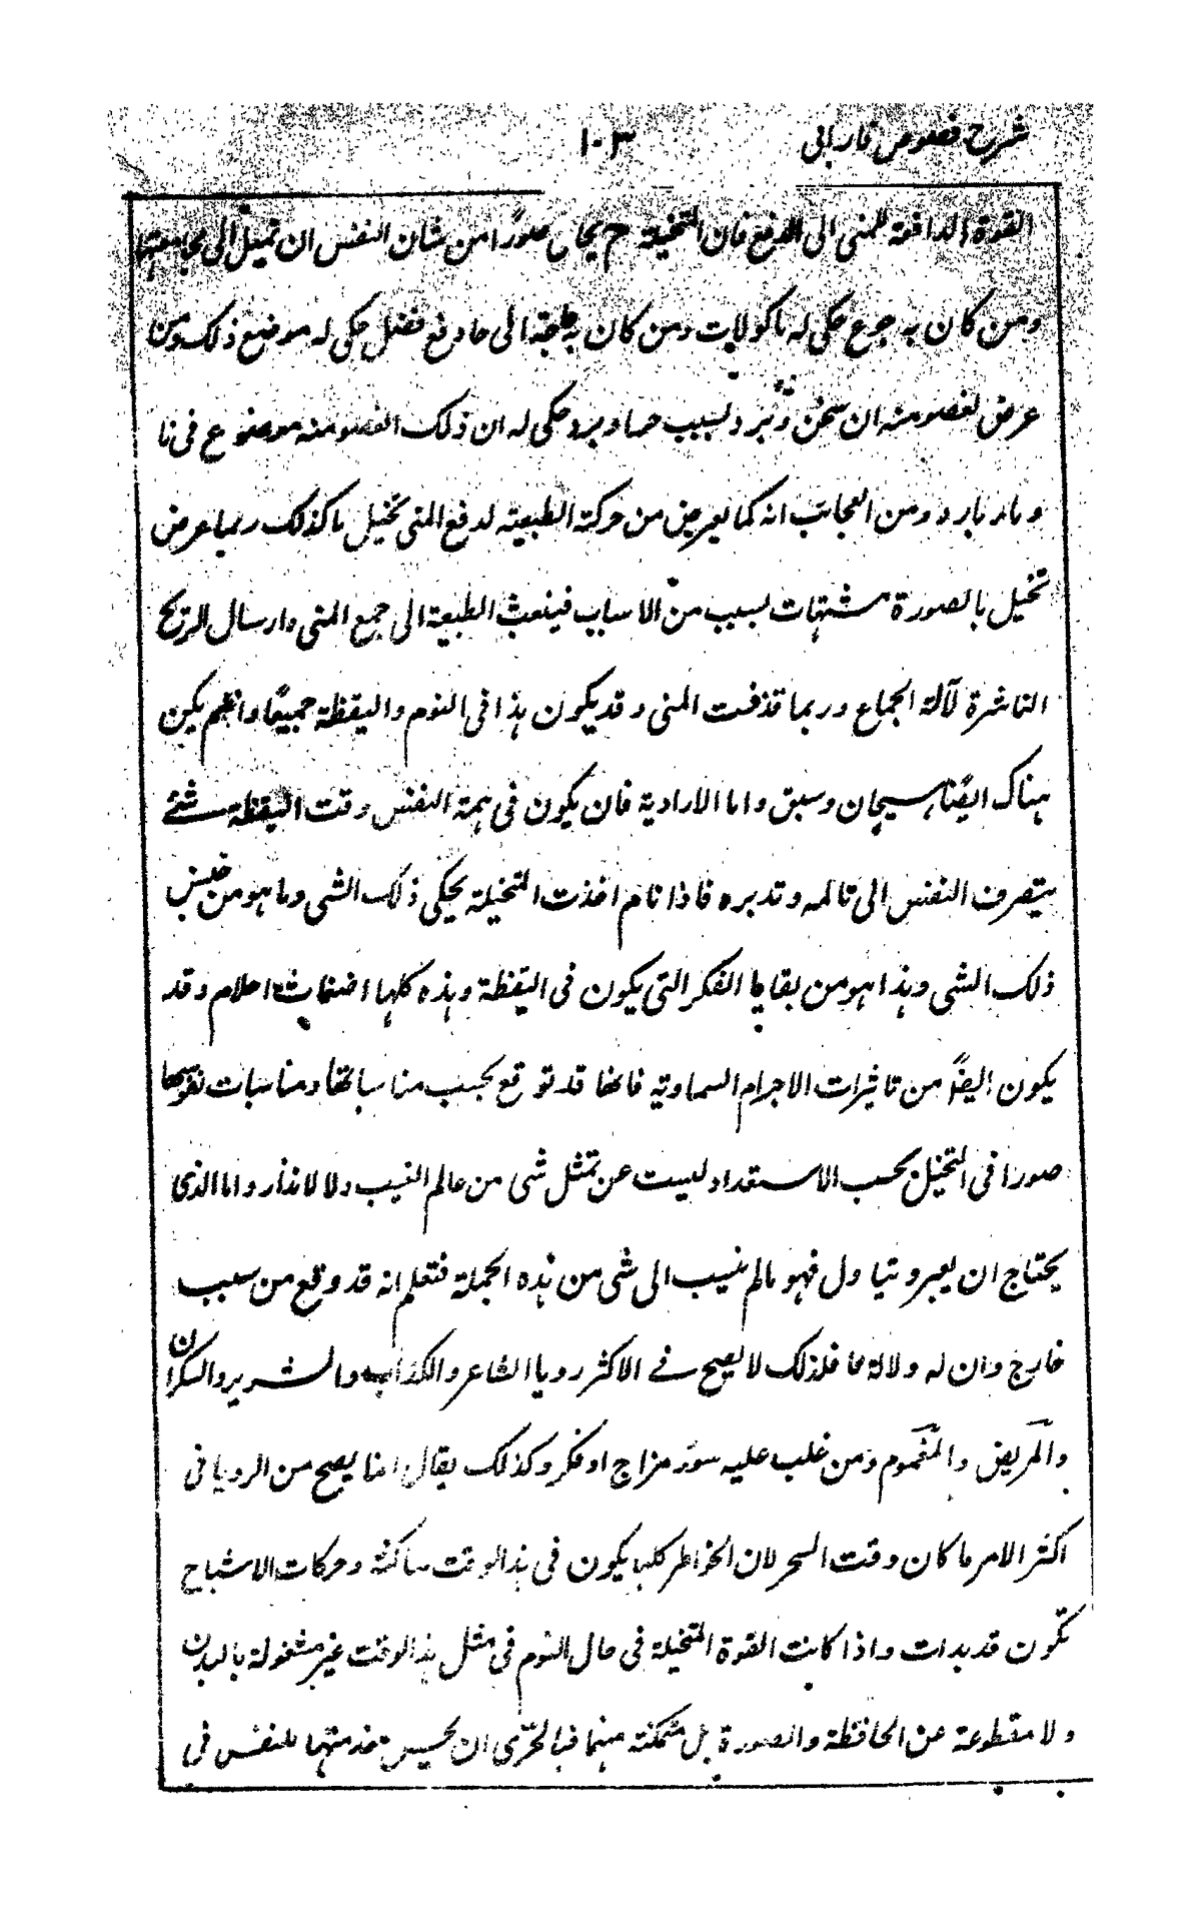 شرح فصوص فارابی ١٠٣
القوة الدافعة للمنی الی الدفع فان المتخیلة ح یحاکی صورًا من شان النفس ان تمیل الی مجامعتها
ومن کان به جوع حکی له ماکولات ومن کان به حاجة الی دفع فضل حکی له موضع ذلک ومن
عرض لعضو منه ان سخن وتبرد بسبب حر او برد حکی له ان ذلک العضو منه موضوع فی نا
و ماء بارد ومن العجائب انه کما یعرض من حرکة الطبیعة لدفع المنی تخیل ما کذلک ربما عرض
تخیل ما لصورة مشتهات بسبب من الاسباب فینبعث الطبیعة الی جمع المنی وارسال الریح
الناشرة لآلة الجماع وربما قذفت المنی وقد یکون هذا فی النوم والیقظة جمیعًا وان لم یکن
هناک ایضًا هیجان وسبق واما الارادیة فان یکون فی همة النفس وقت الیقظة شئ
یتصرف النفس الی تامله وتدبره فاذا نام اخذت المتخیلة یحکی ذلک الشی وما هو من جنس
ذلک الشی وهذا هو من بقایا الفکر التی یکون فی الیقظة وهذه کلها اضغاث احلام وقد
یکون ایضًا من تاثیرات الاجرام السماویة فانها قد توقع بحسب مناسباتها ومناسبات نفوسها
صورا فی التخیل بحسب الاستعداد لیست عن تمثل شی من عالم الغیب ولا لانذار واما الذی
یحتاج ان یعبر و یتاول فهو مالم ینسب الی شی من هذه الجملة فتعلم انه قد وقع من سبب
خارج وان له دلالة ما فلذلک لا یصح فی الاکثر رویا الشاعر والکذاب والشریر والسکران
والمریض والمغموم ومن غلب علیه سوء مزاج او فکر وکذلک یقال انما یصح من الرویا فی
اکثر الامر ما کان وقت السحر لان الخواطر کلها یکون فی هذا الوقت ساکنة وحرکات الاشباح
تکون قد هدات واذا کانت القوة المتخیلة فی حال النوم فی مثل هذا الوقت غیر مشغولة بالبدن
ولا مقطوعة عن الحافظة والمصورة بل متمکنة منهما فبالحری ان یحسن خدمتها للنفس فی